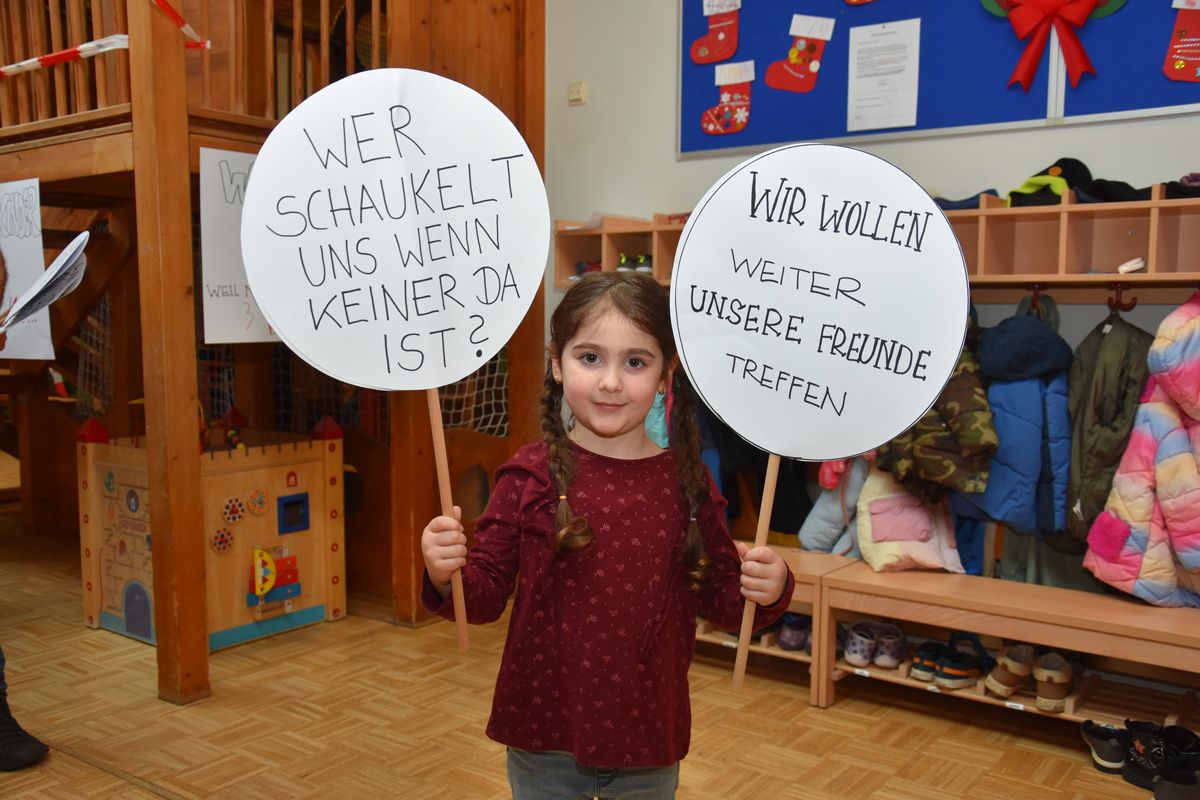 WER
SCHAUKELT
UNS WENN
KEINER DA
IST?
WIR WOLLEN
WEITER
UNSERE FREUNDE
TREFFEN
WEIL
3